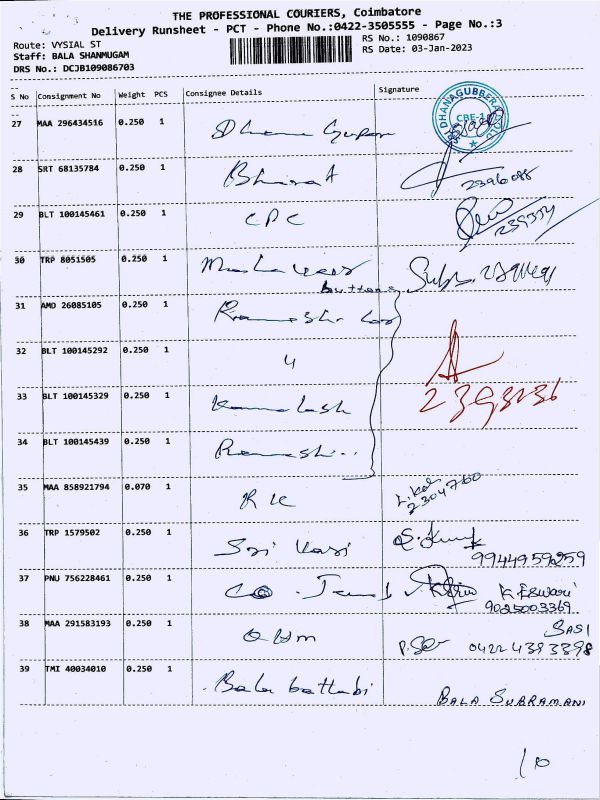 THE PROFESSIONAL COURIERS, Coimbatore
Delivery Runsheet - PCT - Phone No.:0422-3505555 - Page No.:3
Route: VYSIAL ST
RS No.: 1090867
Staff: BALA SHANMUGAM
RS Date: 03-Jan-2023
DRS No.: DCJB109086703
S No Consignment No Weight PCS Consignee Details Signature
27 MAA 296434516 0.250 1
CBE-1
28 SRT 68135784 0.250 1 Bharat
2396088
29 BLT 100145461 0.250 1 CPC
30 TRP 8051505 0.250 1
buttons
31 AMD 26085105 0.250 1
32 BLT 100145292 0.250 1 4
2393236
33 BLT 100145329 0.250 1 Kamalash
34 BLT 100145439 0.250 1 Ramesh
35 MAA 858921794 0.070 1 RK
2304760
36 TRP 1579502 0.250 1 Sri Kasi
9944959259
37 PNU 756228461 0.250 1 K Eswari
9025003369
38 MAA 291583193 0.250 1 OHM SASI
0422 4393398
39 TMI 40034010 0.250 1 Bala BALA SUBRAMANI